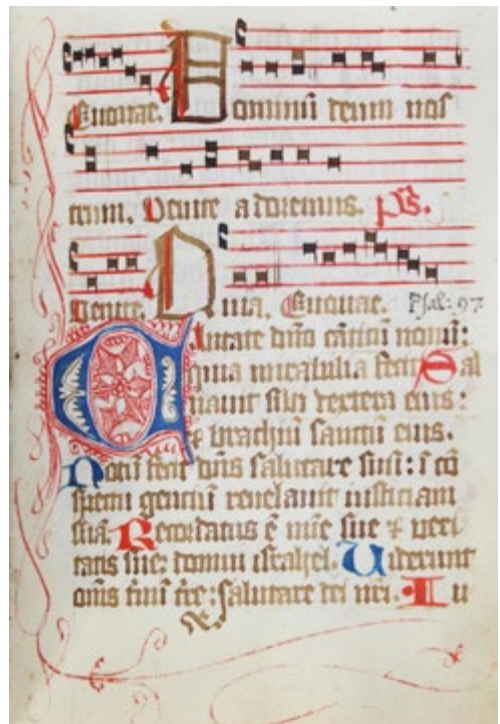 Euouae. Dominū deum nos
trum. Venite adoremus. Ps.
Venite. Euouae. Psal: 97
Cantate dn̄o cāticū nouū:
quia mirabilia fecit Sal
uauit sibi dextera eius:
⁊ brachiū sanctū eius.
Notū fecit dn̄s salutare suū: ī cō
spectu gentiū reuelauit iusticiam
suā. Recordatus ē mīe sue ⁊ veri
tatis sue: domui israhel. Viderunt
om̄s t̄mī tr̄e: salutare dei nr̄i. Iu